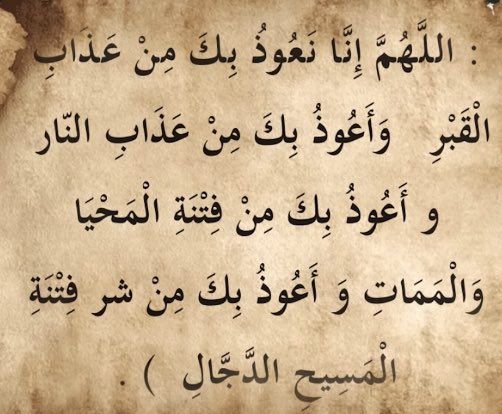 : اللَّهُمَّ إِنَّا نَعُوذُ بِكَ مِنْ عَذَابِ
الْقَبْرِ وَأَعُوذُ بِكَ مِنْ عَذَابِ النّار
و أَعُوذُ بِكَ مِنْ فِتْنَةِ الْمَحْيَا
وَالْمَمَاتِ وَ أَعُوذُ بِكَ مِنْ شر فِتْنَةِ
الْمَسِيحِ الدَّجَّالِ ) .